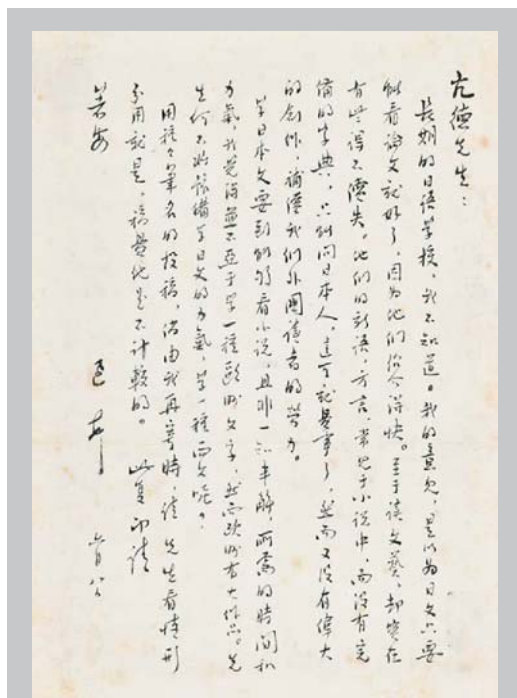 亢德先生：
長期的日語學校，我不知道。我的意見，是以為日文只要
能看論文就好了，因為他們紹介得快。至于讀文藝，却實在
有些得不償失。他們的新語，方言，常見于小說中，而沒有完
備的字典，只能問日本人，這可就費事了，然而又沒有偉大
的創作，補償我們外國讀者的勞力。
學日本文要到能夠看小說，且非一知半解，所需的時間和
力氣，我覺得並不亞于學一種歐洲文字，然而歐洲有大作品。先
生何不將豫備學日文的力氣，學一種西文呢？
用種々筆名的投稿，倘由我再寄時，請 先生看情形
分用就是，稿費他是不計較的。 此复 即請
著安 迅 上 六月八日